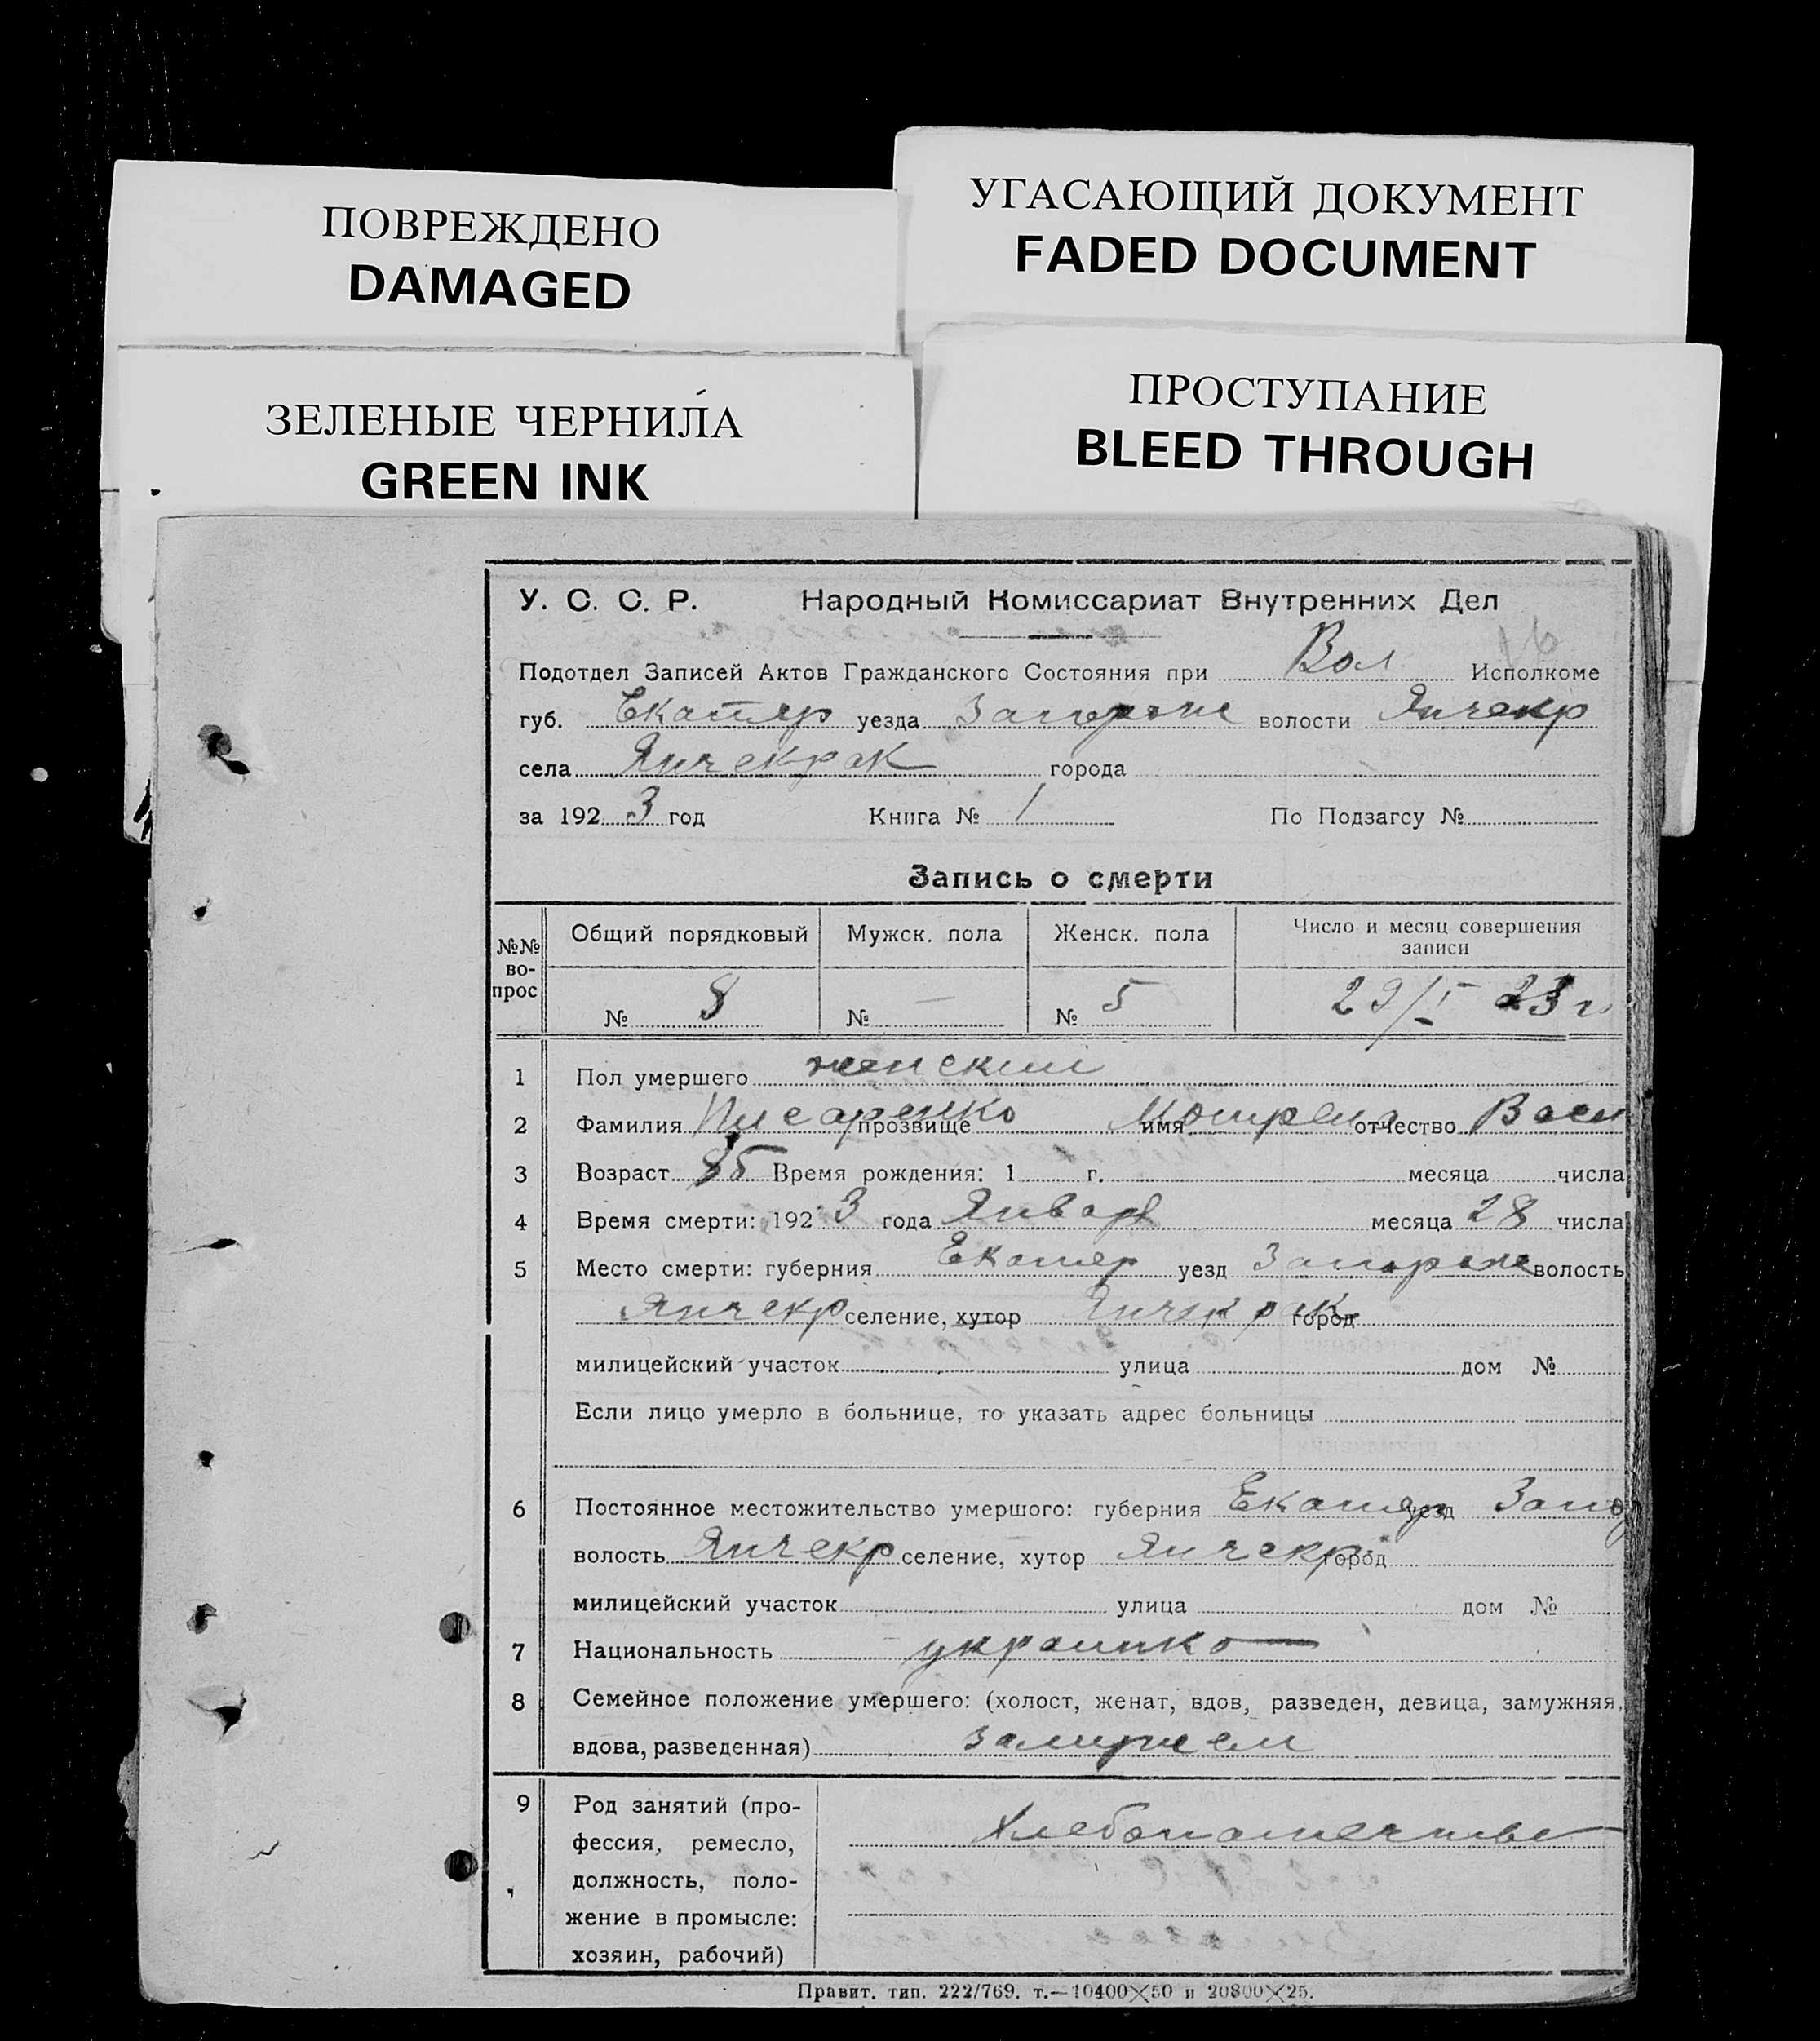 ПОВРЕЖДЕНО
DAMAGED
УГАСАЮЩИЙ ДОКУМЕНТ
FADED DOCUMENT
ЗЕЛЕНЫЕ ЧЕРНИЛА
GREEN INK
ПРОСТУПАНИЕ
BLEED THROUGH
У. С. С. Р. Народный Комиссариат Внутренних Дел
Подотдел Записей Актов Гражданского Состояния при Вол Исполкоме
губ. Екатер уезда Запорож волости Янчекр
села Янчекрак города
за 1923 год Книга № 1 По Подзагсу №
Запись о смерти
№№ во-прос Общий порядковый Мужск. пола Женск. пола Число и месяц совершения записи
№ 8 № — № 5 29/I 23 г
1 Пол умершего женский
2 Фамилия Писаренко прозвище имя отчество Васи
3 Возраст 85 Время рождения: 1 г. месяца числа
4 Время смерти: 1923 года Январ месяца 28 числа
5 Место смерти: губерния Екатер уезд Запорож волость
Янчекр селение, хутор Янчекрак город
милицейский участок улица дом №
Если лицо умерло в больнице, то указать адрес больницы
6 Постоянное местожительство умершого: губерния Екатер уезд Запор
волость Янчекр селение, хутор Янчекр город
милицейский участок улица дом №
7 Национальность украинка
8 Семейное положение умершего: (холост, женат, вдов, разведен, девица, замужняя,
вдова, разведенная) замужем
9 Род занятий (про-
фессия, ремесло, Хлебопашество
должность, поло-
жение в промысле:
хозяин, рабочий)
Правит. тип. 222/769. т.—10400×50 и 20800×25.